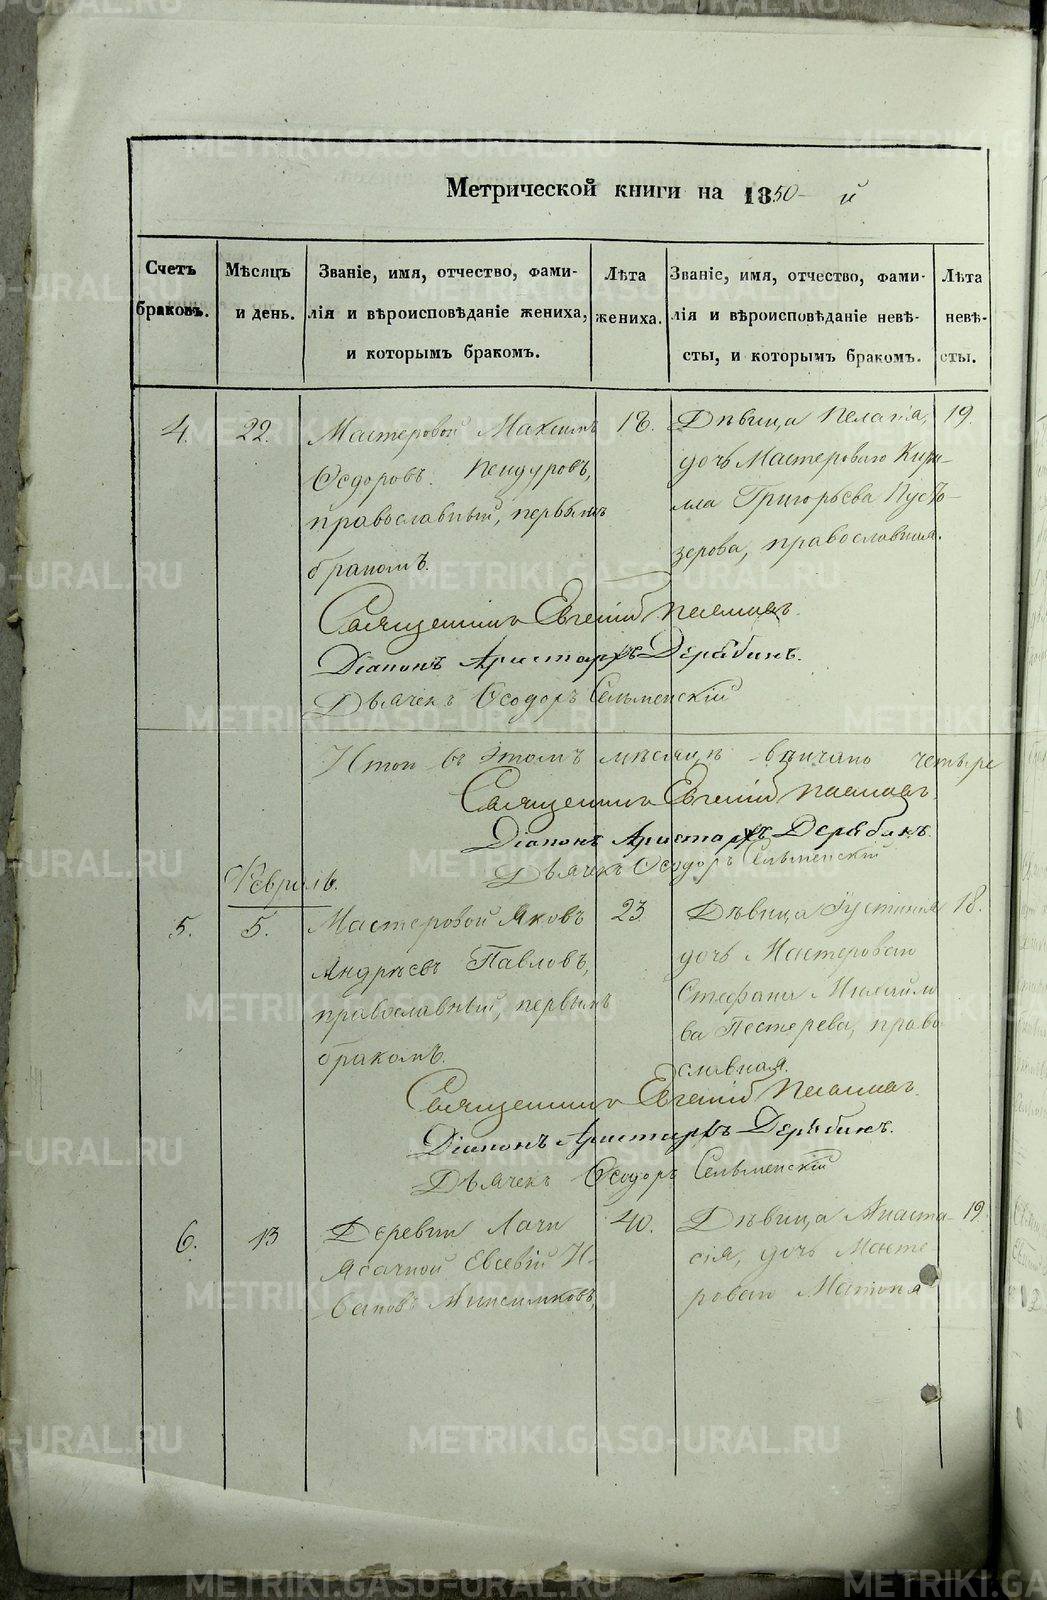 Метрической книги на 1850-й
Счетъ браковъ.
Мѣсяцъ и день.
Званіе, имя, отчество, фамилія и вѣроисповѣданіе жениха, и которымъ бракомъ.
Лѣта жениха.
Званіе, имя, отчество, фамилія и вѣроисповѣданіе невѣсты, и которымъ бракомъ.
Лѣта невѣсты.
4. 22.
Мастеровой Максимъ
Ѳедоровъ
православный, первымъ
бракомъ.
18.
Дѣвица Пелагія,
дочь Мастероваго Кири-
ла Григорьева Пусто-
зерова, православная.
19.
Священникъ Евгеній
Діаконъ Аристархъ Дерябинъ.
Дьячекъ Ѳеодоръ Сельменскій
Итого въ этомъ мѣсяцѣ вѣнчано четыре
Священникъ Евгеній
Діаконъ Аристархъ Дерябинъ.
Дьячекъ Ѳеодоръ Сельменскій
Февраль.
5. 5.
Мастеровой Яковъ
Андреевъ Павловъ,
православный, первымъ
бракомъ.
23.
Дѣвица Іустинія
дочь Мастероваго
Стефана Михайло
ва Пестерева, право
славная.
18.
Священникъ Евгеній
Діаконъ Аристархъ Дерябинъ.
Дьячекъ Ѳеодоръ Сельменскій
6. 13
Деревни Лачи
Ясачной Евсевій И-
вановъ
40.
Дѣвица Анаста-
сія, дочь Масте
роваго
19.
METRIKI.GASO-URAL.RU